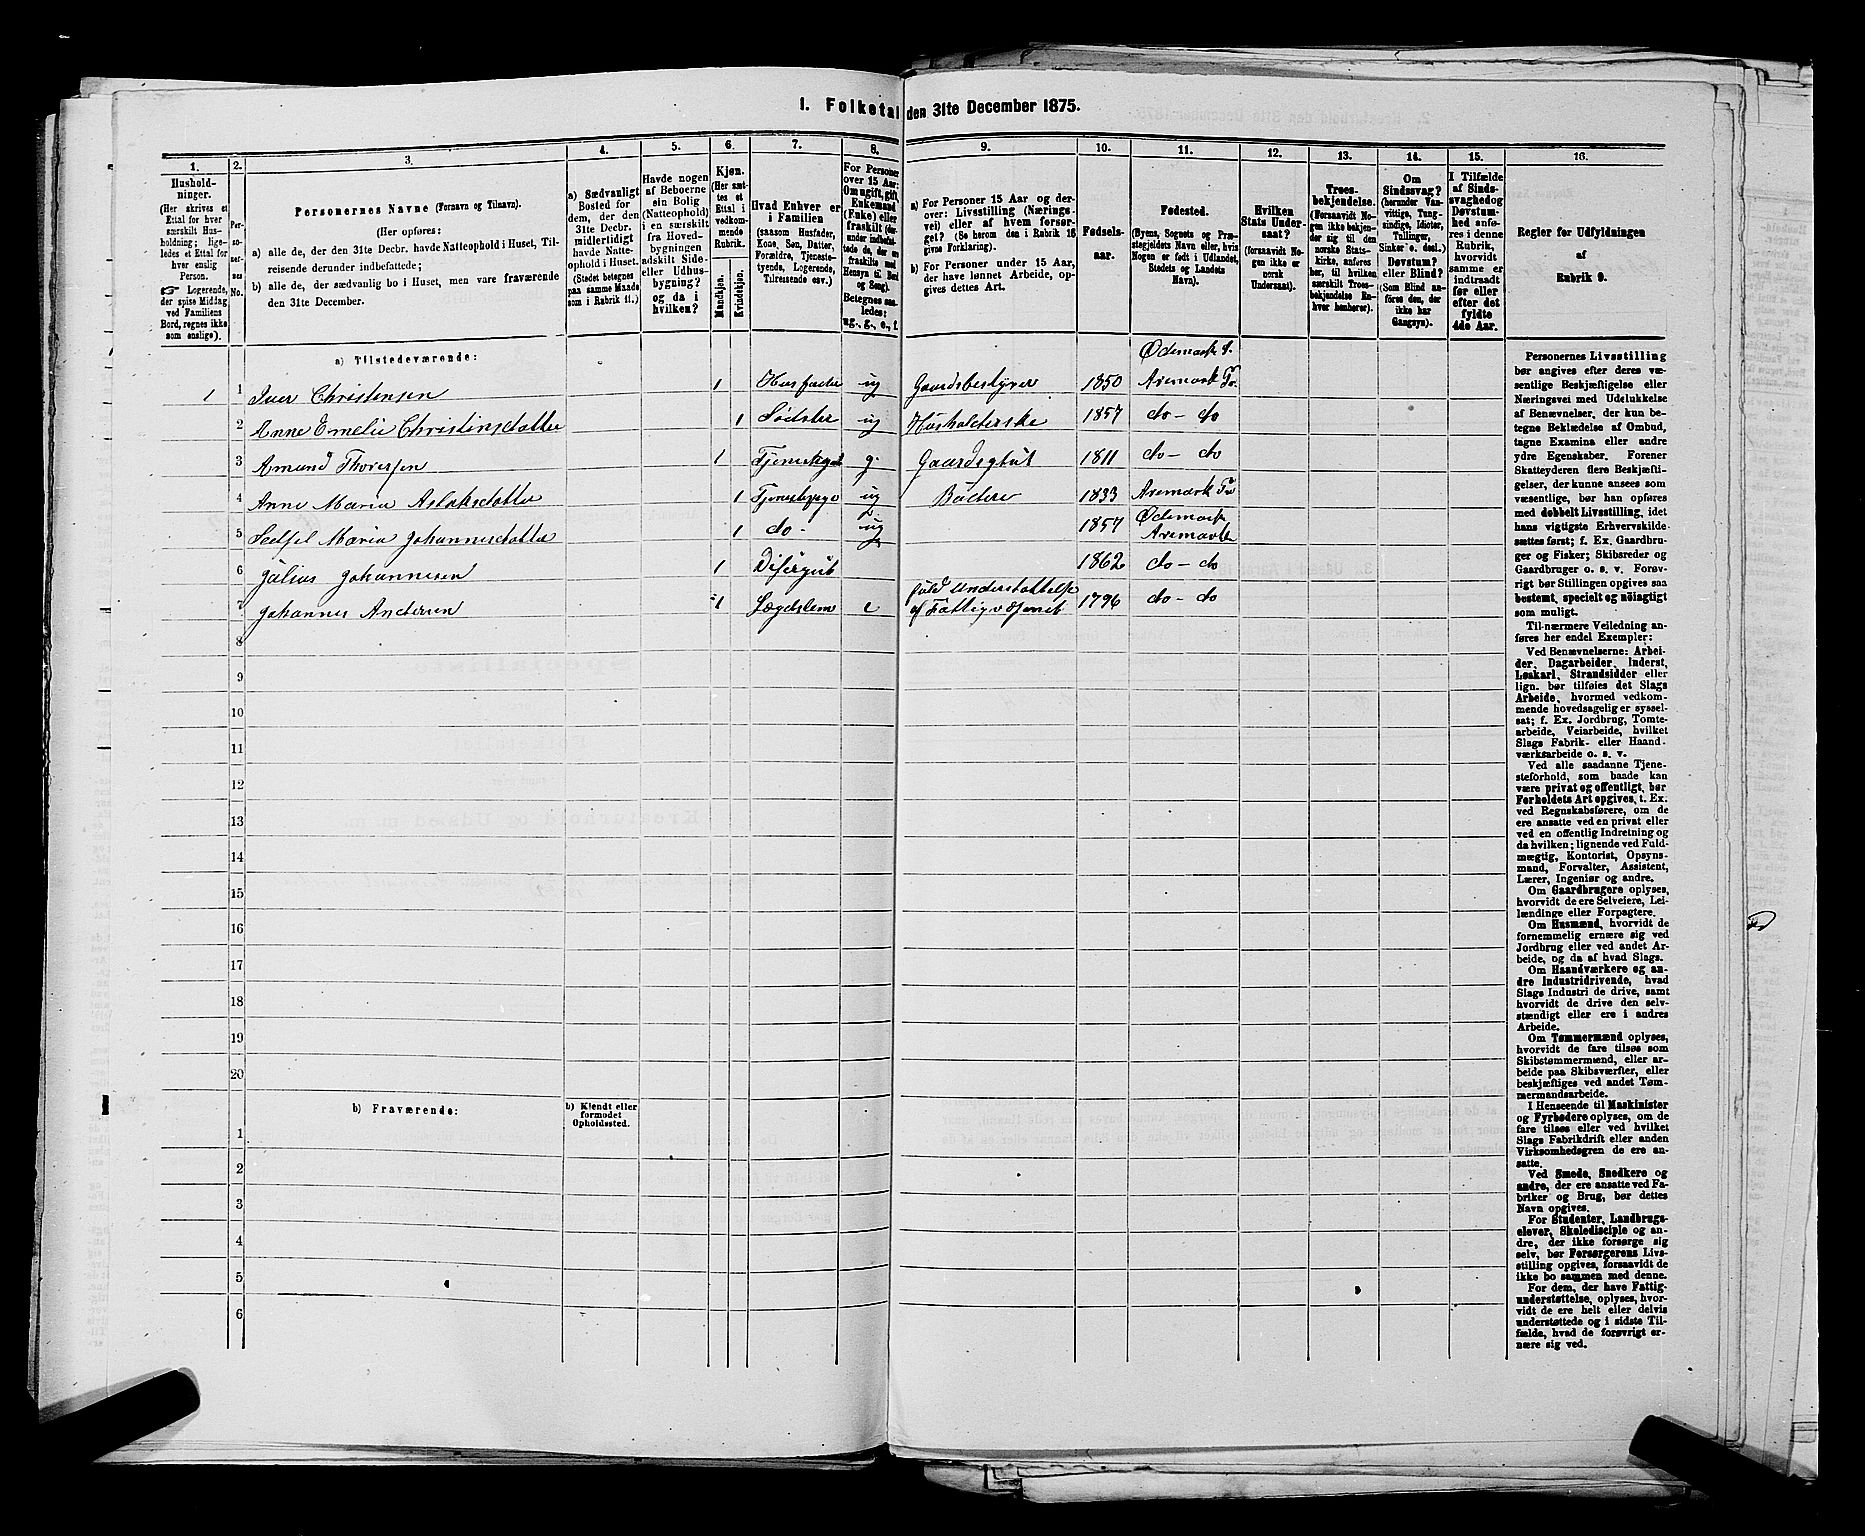 1. Folketal den 31te December 1875.
1. 2. 3. 4. 5. 6. 7. 8. 9. 10. 11. 12. 13. 14. 15. 16.
Hushold-
ninger.
(Her skrives et
Ettal for hver
særskilt Hus-
holdning; lige-
ledes et Ettal for
hver enslig
Person.
Logerende,
der spise Middag
ved Familiens
Bord, regnes ikke
som enslige).
Per-
so-
ner-
nes
No.
Personernes Navne (Fornavn og Tilnavn).
(Her opføres:
a) alle de, der den 31te Decbr. havde Natteophold i Huset, Til-
reisende derunder indbefattede;
b) alle de, der sædvanlig bo i Huset, men vare fraværende
den 31te December.
a) Sædvanligt
Bosted for
dem, der den
31te Decbr.
midlertidigt
havde Natte-
ophold i Huset.
(Stedet betegnes
paa samme Maade
som i Rubrik 11.)
Havde nogen
af Beboerne
sin Bolig
(Natteophold)
i en særskilt
fra Hoved-
bygningen
adskilt Side-
eller Udhus-
bygning?
og da i
hvilken?
Kjøn.
(Her sæt-
tes et
Ettal i
vedkom-
mende
Rubrik.
Mandkjøn.
Kvindekjøn.
Hvad Enhver er
i Familien
(saasom Husfader,
Kone, Søn, Datter,
Forældre, Tjeneste-
tyende, Logerende,
Tilreisende osv.)
For Personer
over 15 Aar:
Om ugift, gift,
Enkemand
(Enke) eller
fraskilt (der-
under indbefat-
tede de, der ere
fraskilte med
Hensyn til Bord
og Seng).
Betegnes saa-
ledes:
ug., g., e., f.
a) For Personer 15 Aar og der-
over: Livsstilling (Nærings-
vei) eller af hvem forsør-
get? (Se herom den i Rubrik 16
givne Forklaring).
b) For Personer under 15 Aar,
der have lønnet Arbeide, op-
gives dettes Art.
Fødsels-
aar.
Fødested.
(Byens, Sognets og Præ-
stegjeldets Navn eller, hvis
Nogen er født i Udlandet,
Stedets og Landets
Navn).
Hvilken
Stats Under-
saat?
(foraavidt No-
gen ikke er
norsk
Undersaat).
Troes-
bekjendelse.
(Forsaavidt No-
gen ikke bekjen-
der sig til den
norske Stats-
kirke, anføres
her, til hvilken
særskilt Troes-
bekjendelse En-
hver henhører).
Om
Sindssvag?
(herunder Van-
vittige, Tung-
sindige, Idioter,
Tullinger,
Sinker o. desl.)
Døvstum?
eller Blind?
(Som Blind an-
føres den, der
ikke har
Gangsyn).
I Tilfælde
af Sinds-
svaghedog
Døvstum-
hed anfø-
res i denne
Rubrik,
hvorvidt
samme er
indtraadt
før eller
efter det
fyldte
4de Aar.
Regler for Udfyldningen
af
Rubrik 9.
a) Tilstedeværende:
Ødemark S.
1 1 Iver Christensen 1 Husfader ug Gaardsbestyrer 1850 Aremark Pr.
2 Anne Emelie Christinsdatter 1 Sødster ug Husholderske 1857 do - do
3 Amund Thoresen 1 g. Gaardsgut 1811 do - do
4 Anne Maria Aslaksdatter 1 Tjenestepige ug Budeie 1833 Aremark Pr
Ødemark
5 Maria Johannesdatter 1 do - ug 1857 Aremark
6 Julius Johannesen 1 1862 do - do
fuld understøttelse
7 Johannes Andersen 1 Lægdslem e af Fattigvæsenet 1796 do - do
8
9
10
11
12
13
14
15
16
17
18
19
20
b) Fraværende:
b) Kjendt eller
formodet
Opholdssted.
1
2
3
4
5
6
Personernes Livsstilling
bør angives efter deres væ-
sentlige Beskjæftigelse eller
Næringsvei med Udelukkelse
af Benævnelser, der kun be-
tegne Beklædelse af Ombud,
tagne Examina eller andre
ydre Egenskaber. Forener
Skatteyderen flere Beskjæfti-
gelser, der kunne ansees som
væsentlige, bør han opføres
med dobbelt Livsstilling, idet
hans vigtigste Erhvervskilde
sættes først; f. Ex. Gaardbru-
ger og Fisker; Skibsreder og
Gaardbruger o. s. v. Forøv-
rigt bør Stillingen opgives saa
bestemt, specielt og nøiagtigt
som muligt.
Til nærmere Veiledning an-
føres her endel Exempler:
Ved Benævnelserne: Arbei-
der, Dagarbeider, Inderst,
Løskarl, Strandsidder eller
lign. bør tilføies det Slags
Arbeide, hvormed vedkom-
mende hovedsagelig er syssel-
sat; f. Ex. Jordbrug, Tomte-
arbeide, Veiarbeide, hvilket
Slags Fabrik- eller Haand-
værksarbeide o. s. v.
Ved alle saadanne Tjene-
steforhold, som baade kan
være privat og offentligt, bør
Forholdets Art opgives, t. Ex.
ved Regnskabsførere, om de
ere ansatte ved en privat eller
ved en offentlig Indretning og
da hvilken; lignende ved Fuld-
mægtig, Kontorist, Opsyns-
mand, Forvalter, Assistent,
Lærer, Ingeniør og andre.
Om Gaardbrugere oplyses,
hvorvidt de ere Selveiere, Lei-
lændinge eller Forpagtere.
Om Husmænd, hvorvidt de
fornemmelig ernære sig ved
Jordbrug eller ved andet Ar-
beide, og da af hvad Slags.
Om Haandværkere og an-
dre Industridrivende, hvad
Slags Industri de drive, samt
hvorvidt de drive den selv-
stændigt eller ere i andres
Arbeide.
Om Tømmermænd oplyses,
hvorvidt de fare tilsøs som
Skibstømmermænd, eller ar-
beide paa Skibsværfter, eller
beskjæftiges ved andet Tøm-
mermandsarbeide.
I Henseende til Maskinister
og Fyrbødere oplyses, om de
fare tilsøs eller ved hvilket
Slags Fabrikdrift eller anden
Virksomhedsgren de ere an-
satte.
Ved Smede, Snedkere og
andre, der ere ansatte ved Fa-
briker og Brug, bør dettes
Navn opgives.
For Studenter, Landbrugs-
elever, Skoledisciple og an-
dre, der ikke forsørge sig
selv, bør Forsørgerens Livs-
stilling opgives, forsaavidt de
ikke bo sammen med denne.
For dem, der have Fattig-
understøttelse, oplyses, hvor-
vidt de ere helt eller delvis
understøttede og i sidste Til-
fælde, hvad de forøvrigt er-
nære sig ved.